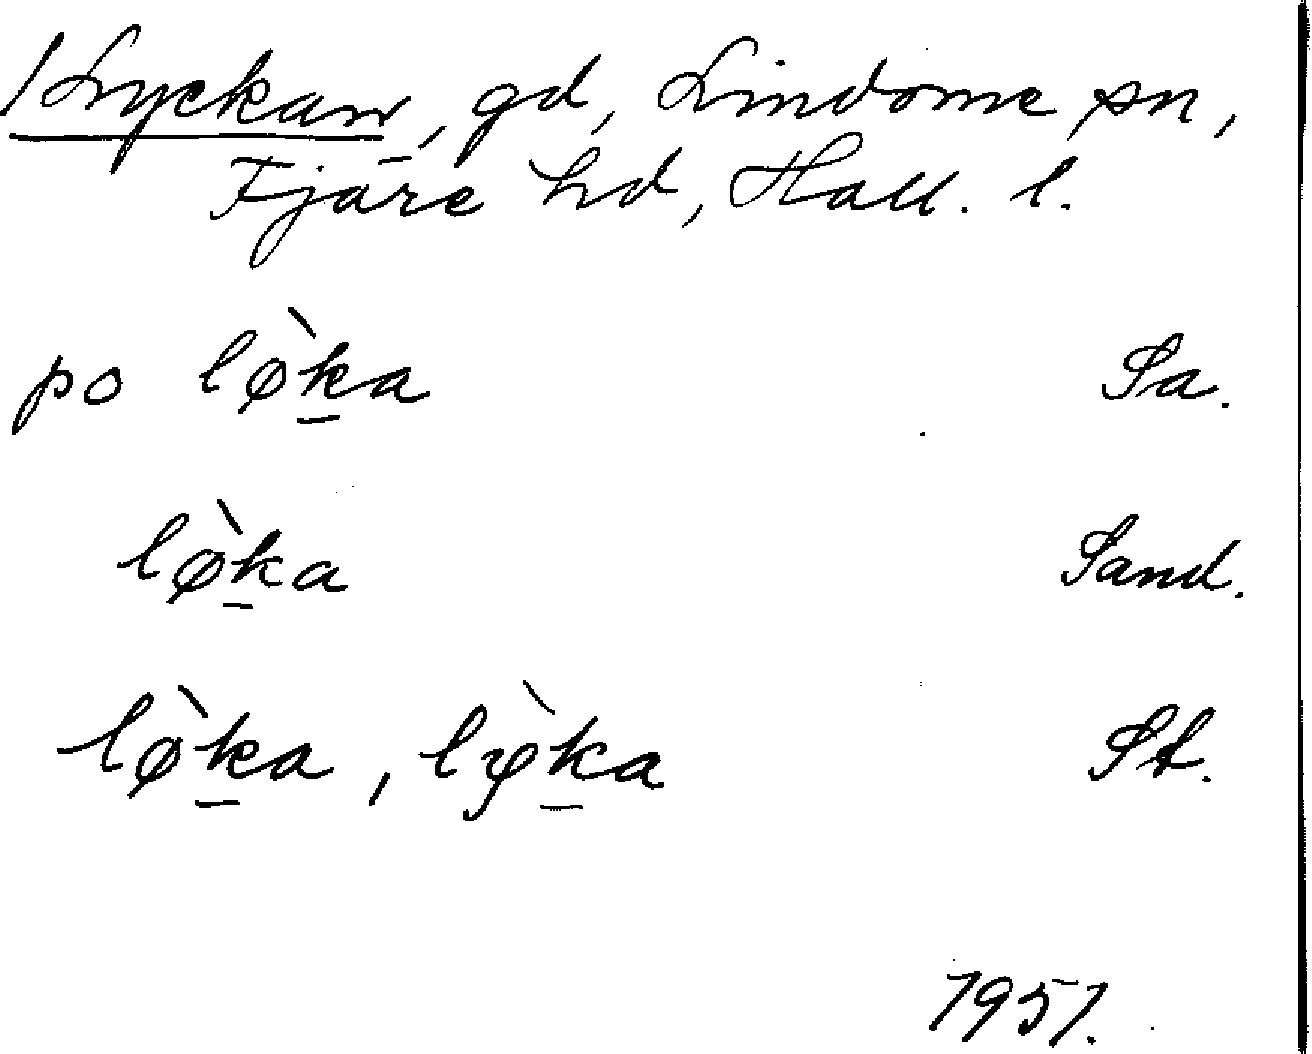 /Lyckan, gd, Lindome sn,
Fjäre hd, Hall. l.
po lø̀ḵa Sa.
lø̀ḵa Sand.
lø̀ḵa, lỳḵa St.
1951.